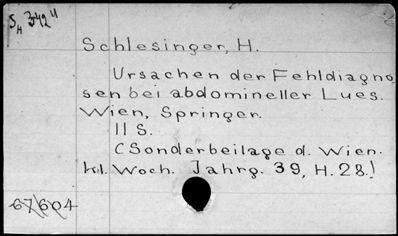 S_H 342 4
Schlesinger, H.
Ursachen der Fehldiagno
sen bei abdomineller Lues.
Wien, Springer.
11 S.
(Sonderbeilage d. Wien.
kl. Woch. Jahrg. 39, H. 28.)
67/604